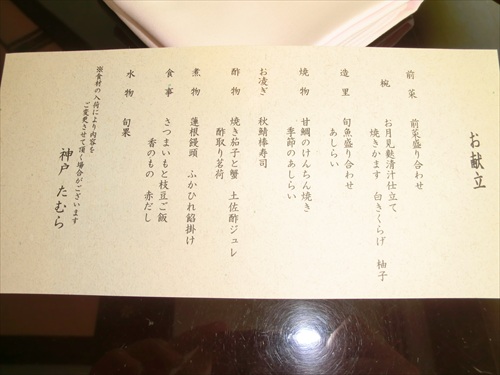 お献立
前菜　前菜盛り合わせ
椀　お月見麩清汁仕立て
焼きかます　白きくらげ　柚子
造里　旬魚盛り合わせ
あしらい
焼物　甘鯛のけんちん焼き
季節のあしらい
お凌ぎ　秋鯖棒寿司
酢物　焼き茄子と蟹　土佐酢ジュレ
酢取り茗荷
煮物　蓮根饅頭　ふかひれ餡掛け
食事　さつまいもと枝豆ご飯
香のもの　赤だし
水物　旬果
※食材の入荷により内容を
ご変更させて頂く場合がございます
神戸　たむら